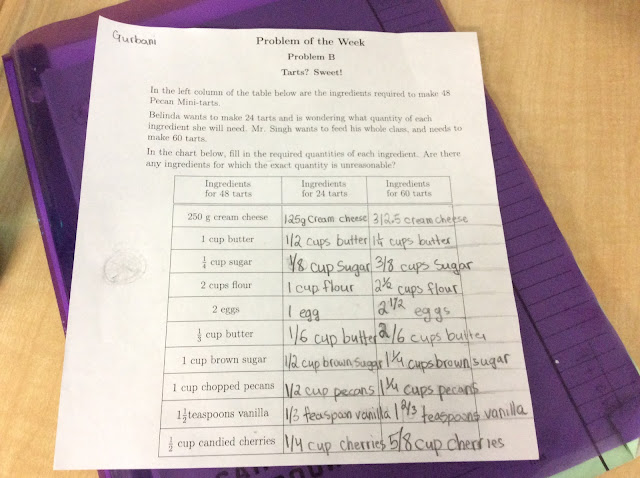 Gurbani
Problem of the Week
Problem B
Tarts? Sweet!
In the left column of the table below are the ingredients required to make 48
Pecan Mini-tarts.
Belinda wants to make 24 tarts and is wondering what quantity of each
ingredient she will need. Mr. Singh wants to feed his whole class, and needs to
make 60 tarts.
In the chart below, fill in the required quantities of each ingredient. Are there
any ingredients for which the exact quantity is unreasonable?
Ingredients for 48 tarts Ingredients for 24 tarts Ingredients for 60 tarts
250 g cream cheese 125g Cream cheese 312.5 cream cheese
1 cup butter 1/2 cups butter 1¼ cups butter
1/4 cup sugar 1/8 cup Sugar 3/8 cups Sugar
2 cups flour 1 cup flour 2½ cups flour
2 eggs 1 egg 2 1/2 eggs
1/3 cup butter 1/6 cup butter 2/6 cups butter
1 cup brown sugar 1/2 cup brown sugar 1¼ cups brown sugar
1 cup chopped pecans 1/2 cup pecans 1¼ cups pecans
1½ teaspoons vanilla 1/3 teaspoon vanilla 1 2/3 teaspoons vanilla
½ cup candied cherries 1/4 cup cherries 5/8 cup cherries